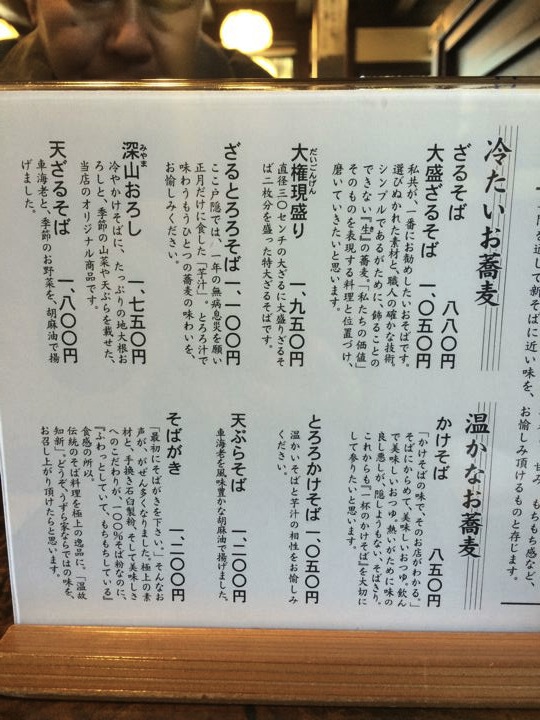 冷たいお蕎麦
ざるそば 八八〇円
大盛ざるそば 一、〇五〇円
私共が、一番にお勧めしたいおそばです。
選びぬかれた素材と、職人の確かな技術。
シンプルであるがために、飾ることの
できない『生』の蕎麦。「私たちの価値」
そのものを表現する料理と位置づけ、
磨いていきたいと思います。
だいごんげん
大権現盛り 一、九五〇円
直径三〇センチの大ざるに大盛りざるそ
ば二枚分を盛った特大ざるそばです。
ざるとろろそば 一、一〇〇円
ここ戸隠では、一年の無病息災を願い
正月だけに食した「芋汁」。とろろ汁で
味わうもうひとつの蕎麦の味わいを、
お愉しみください。
みやま
深山おろし 一、七五〇円
冷やかけそばに、たっぷりの地大根お
ろしと、季節の山菜や天ぷらを載せた、
当店のオリジナル商品です。
天ざるそば 一、八〇〇円
車海老と、季節のお野菜を、胡麻油で揚
げました。
を通して新そばに近い味を、お愉
もちもち感など、
しみ頂けるものと存じます。
温かなお蕎麦
かけそば 八五〇円
「かけそばの味で、そのお店がわかる。」
そばにからめて、美味しいおつゆ。飲ん
で美味しいおつゆ。熱いがために味の
良し悪しが、隠しようもない、そばぎり。
これからも『一杯のかけそば』を大切に
して参りたいと思います。
とろろかけそば 一、〇五〇円
温かいそばと芋汁の相性をお愉しみ
ください。
天ぷらそば 一、二〇〇円
車海老を風味豊かな胡麻油で揚げました。
そばがき 一、二〇〇円
「最初にそばがきを下さい。」そんなお
声が、がぜん多くなりました。極上の素
材と、手挽き石臼製粉、そして美味しさ
へのこだわりが、一〇〇%そば粉なのに、
『ふわっとしていて、もちもちしている』
食感の所以。
伝統のそば料理を極上の逸品に。「温故
知新」。どうぞ、うずら家ならではの味を、
お召し上がり頂けたらと思います。